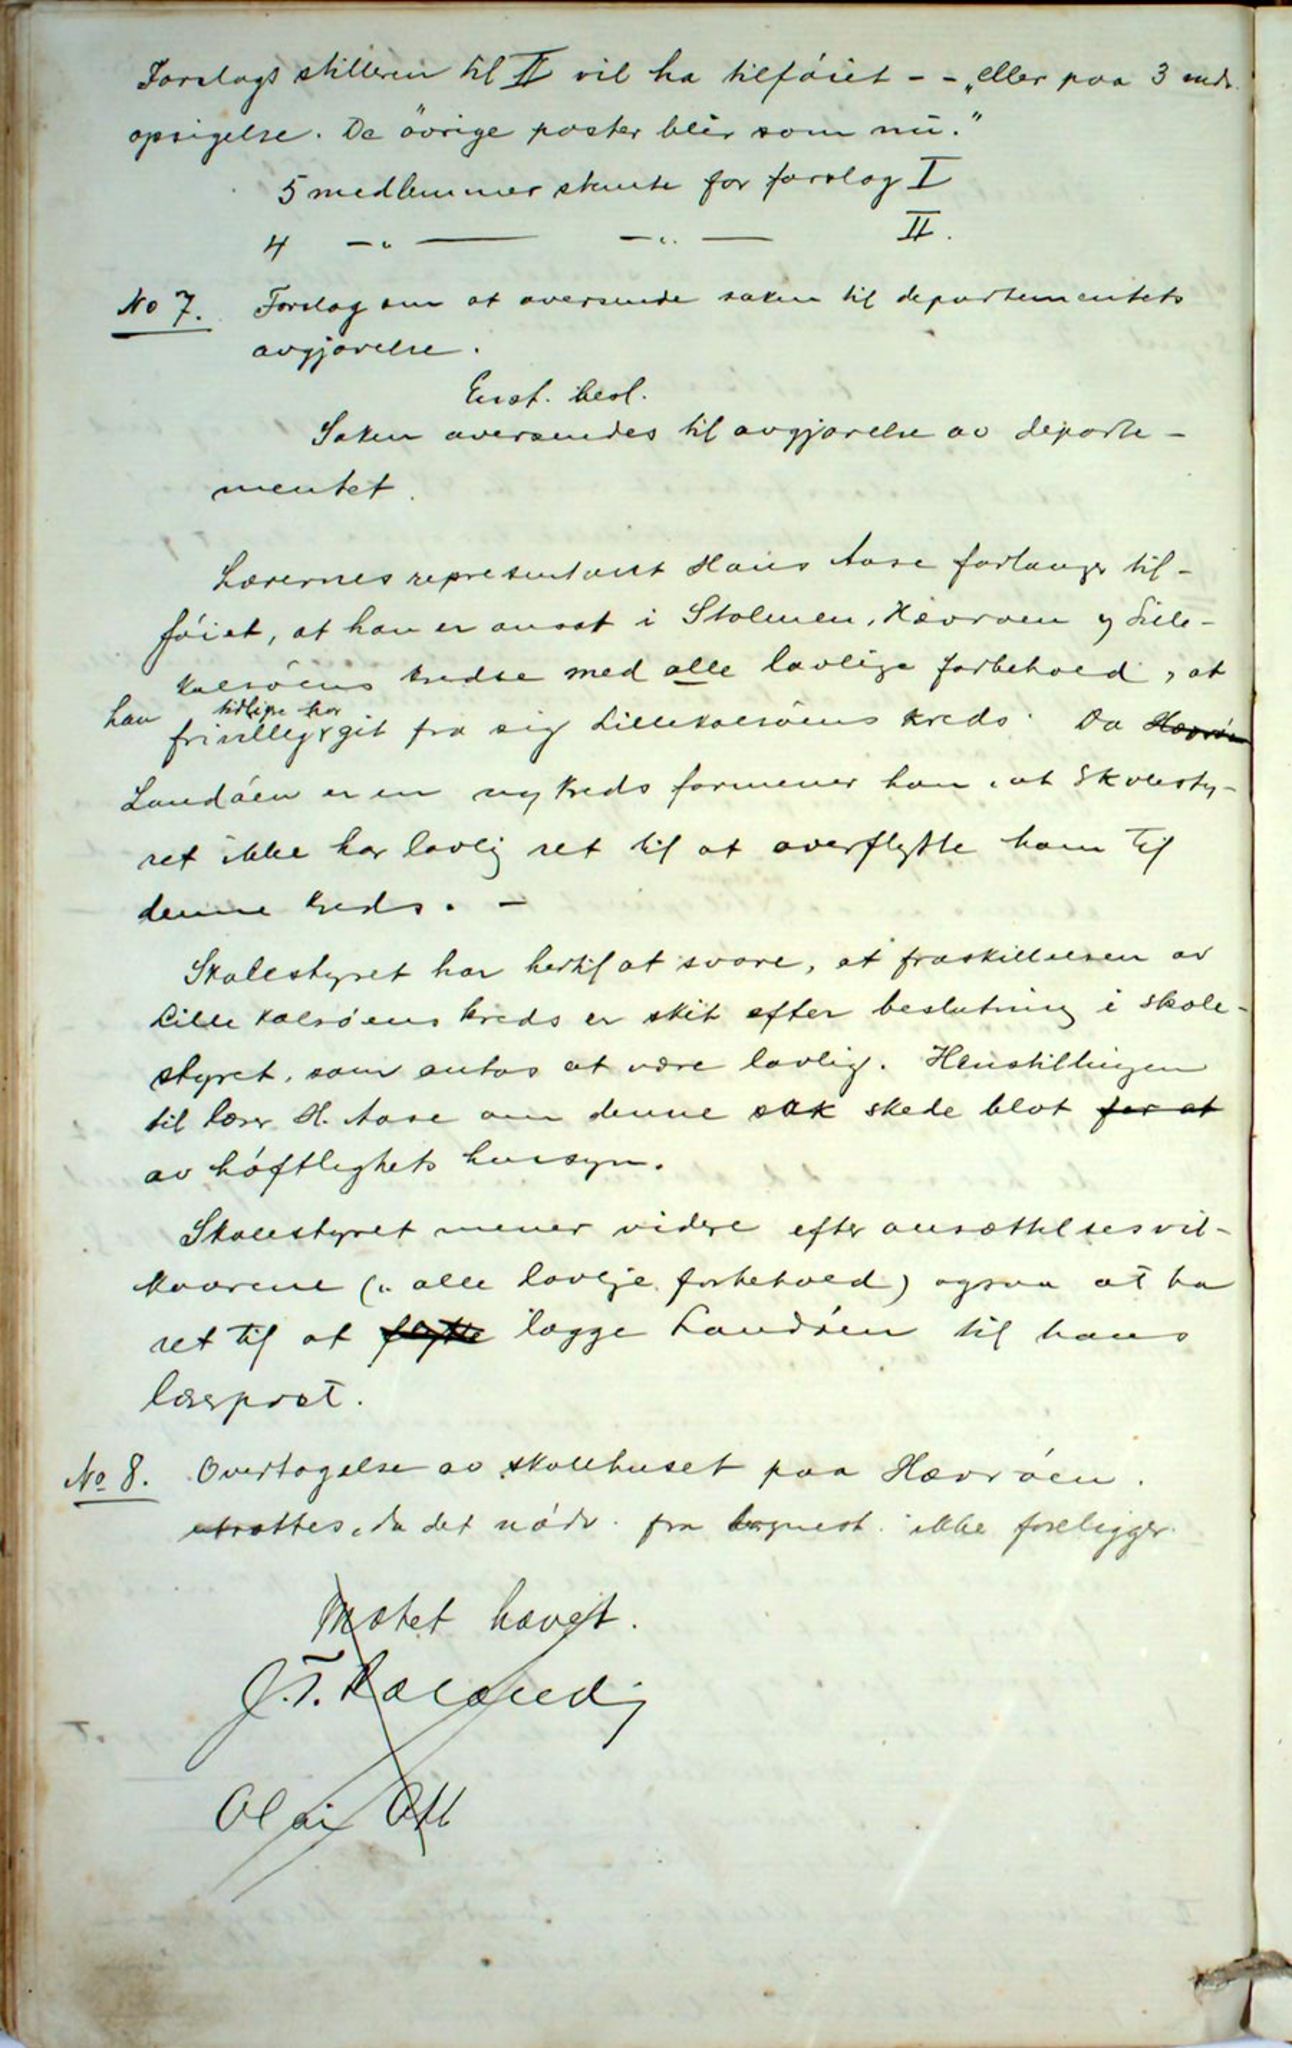 Forslagsstilleren til II vil ha tilføiet - - „eller paa 3 mdr.
opsigelse. De övrige poster blir som nu."
5 medlemmer stemte for forslag I
4 -"- -"- II.
No 7. Forslag om at oversende saken til departementets
avgjørelse.
Enst. besl.
Saken oversendes til avgjørelse av departe-
mentet.
Lærernes representant Hans Aase forlanger til-
føiet, at han er ansat i Stolmen, Hævrøen og Lille-
kalsöens kredse med alle lovlige forbehold, at
han frivillig tidligere har git fra sig Lillekalsöens kreds. Da Hævrøen
Landøen er en ny kreds formener han, at Skolesty-
ret ikke har lovlig ret til at overflytte ham til
denne kreds. -
Skolestyret har hertil at svare, at fraskillelsen av
Lillekalsøens kreds er skit efter beslutning i skole-
styret, som antas at være lovlig. Henstillingen
til lærer H. Aase om denne sak skede blot for at
av høftlighets hensyn.
Skolestyret mener videre efter ansættelsesvil-
kaarene („alle lovlige forbehold) ogsaa at ha
ret til at flytte lægge Landøen til hans
lærerpost.
No 8. Overtagelse av skolehuset paa Hævrøen.
utsættes, da det nødv. fra ikke foreligger.
Møtet hævet.
J. T. Kalvenes
Olai